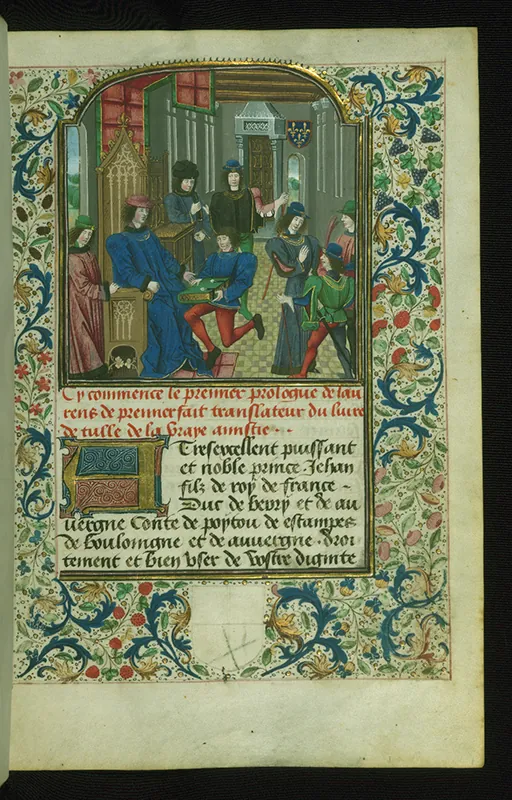 Cy commence le premier prologue de lau
rens de premier fait translateur du livre
de tulle de la vraye amistie
A Tresexcellent puissant
et noble prince Jehan
filz de roy de france
Duc de berry et de au
uergne Conte de poytou de estampes
de boulomgne et de auuergne . Droi
tement et bien vser de vostre dignite